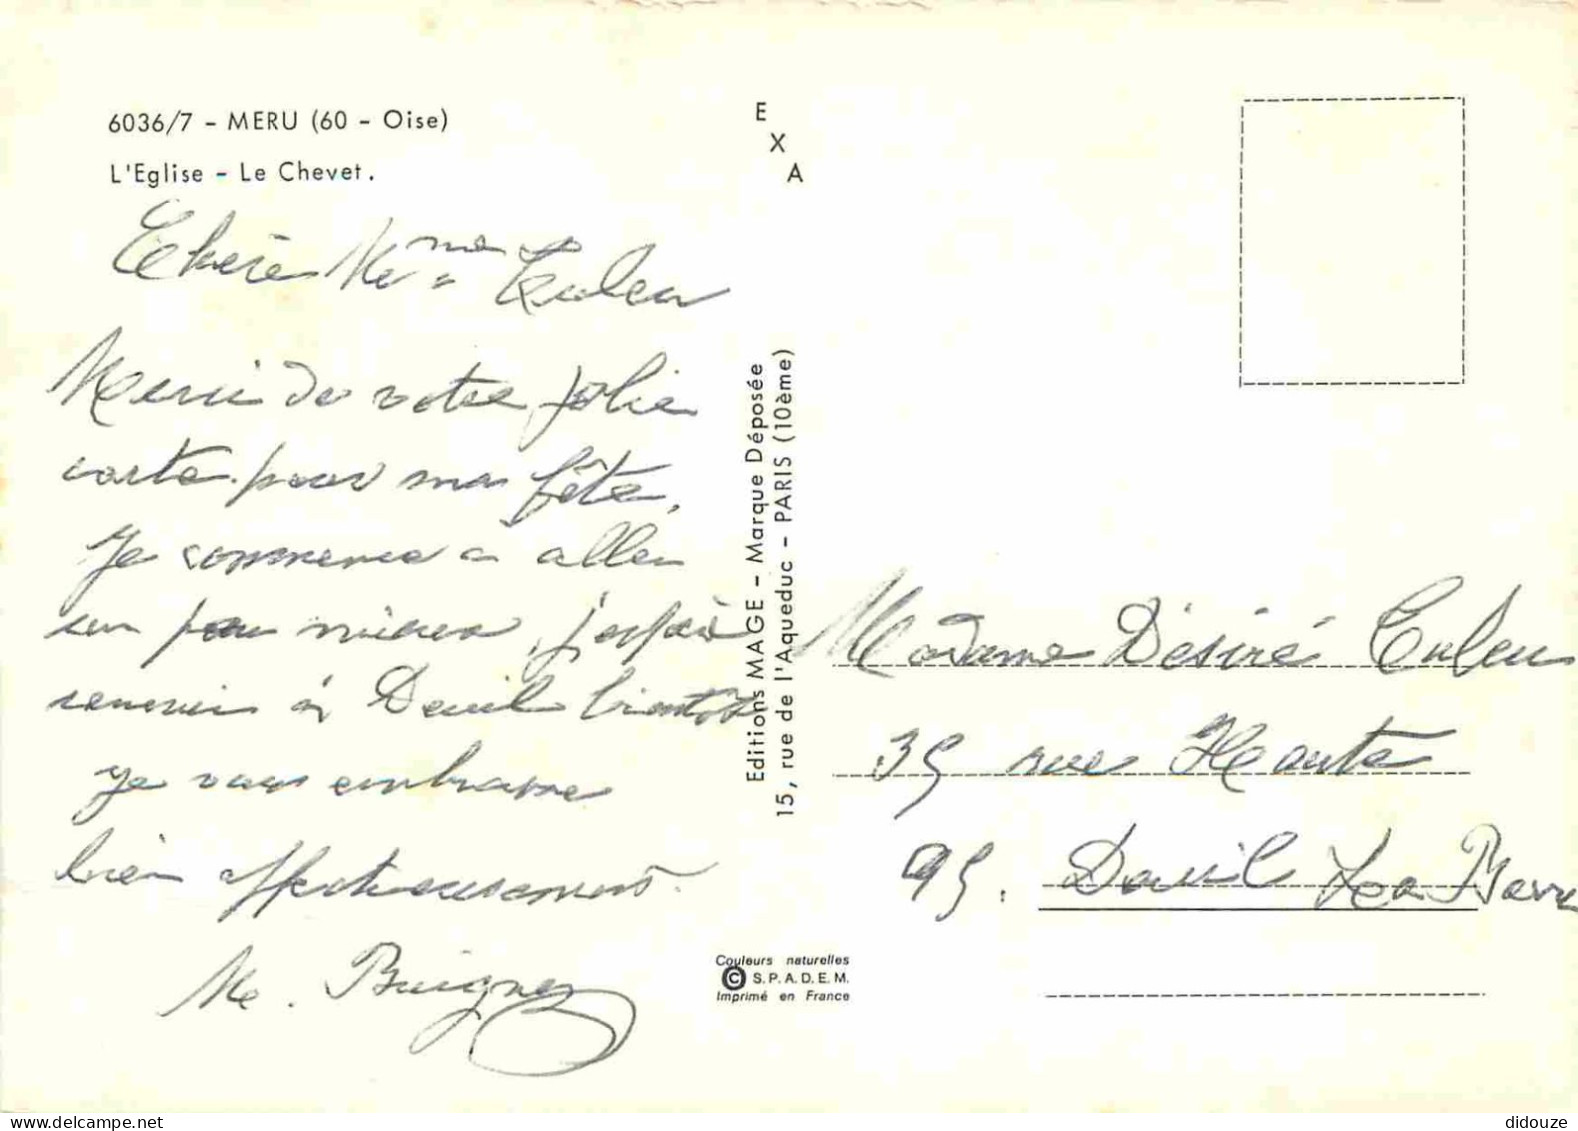 6036/7 - MERU (60 - Oise)
L'Eglise - Le Chevet.
E
X
A
Chère Mme
Merci de votre jolie
carte pour ma fête,
Je commence a aller
un peu mieux, j'espère
revenir à Deuil bientôt
Je vous embrasse
bien affectueusement.
M.
Editions MAGE - Marque Déposée
15, rue de l'Aqueduc - PARIS (10ème)
Couleurs naturelles
© S.P.A.D.E.M.
Imprimé en France
Madame Désiré
35 rue Haute
95. Deuil La Barre
didouze